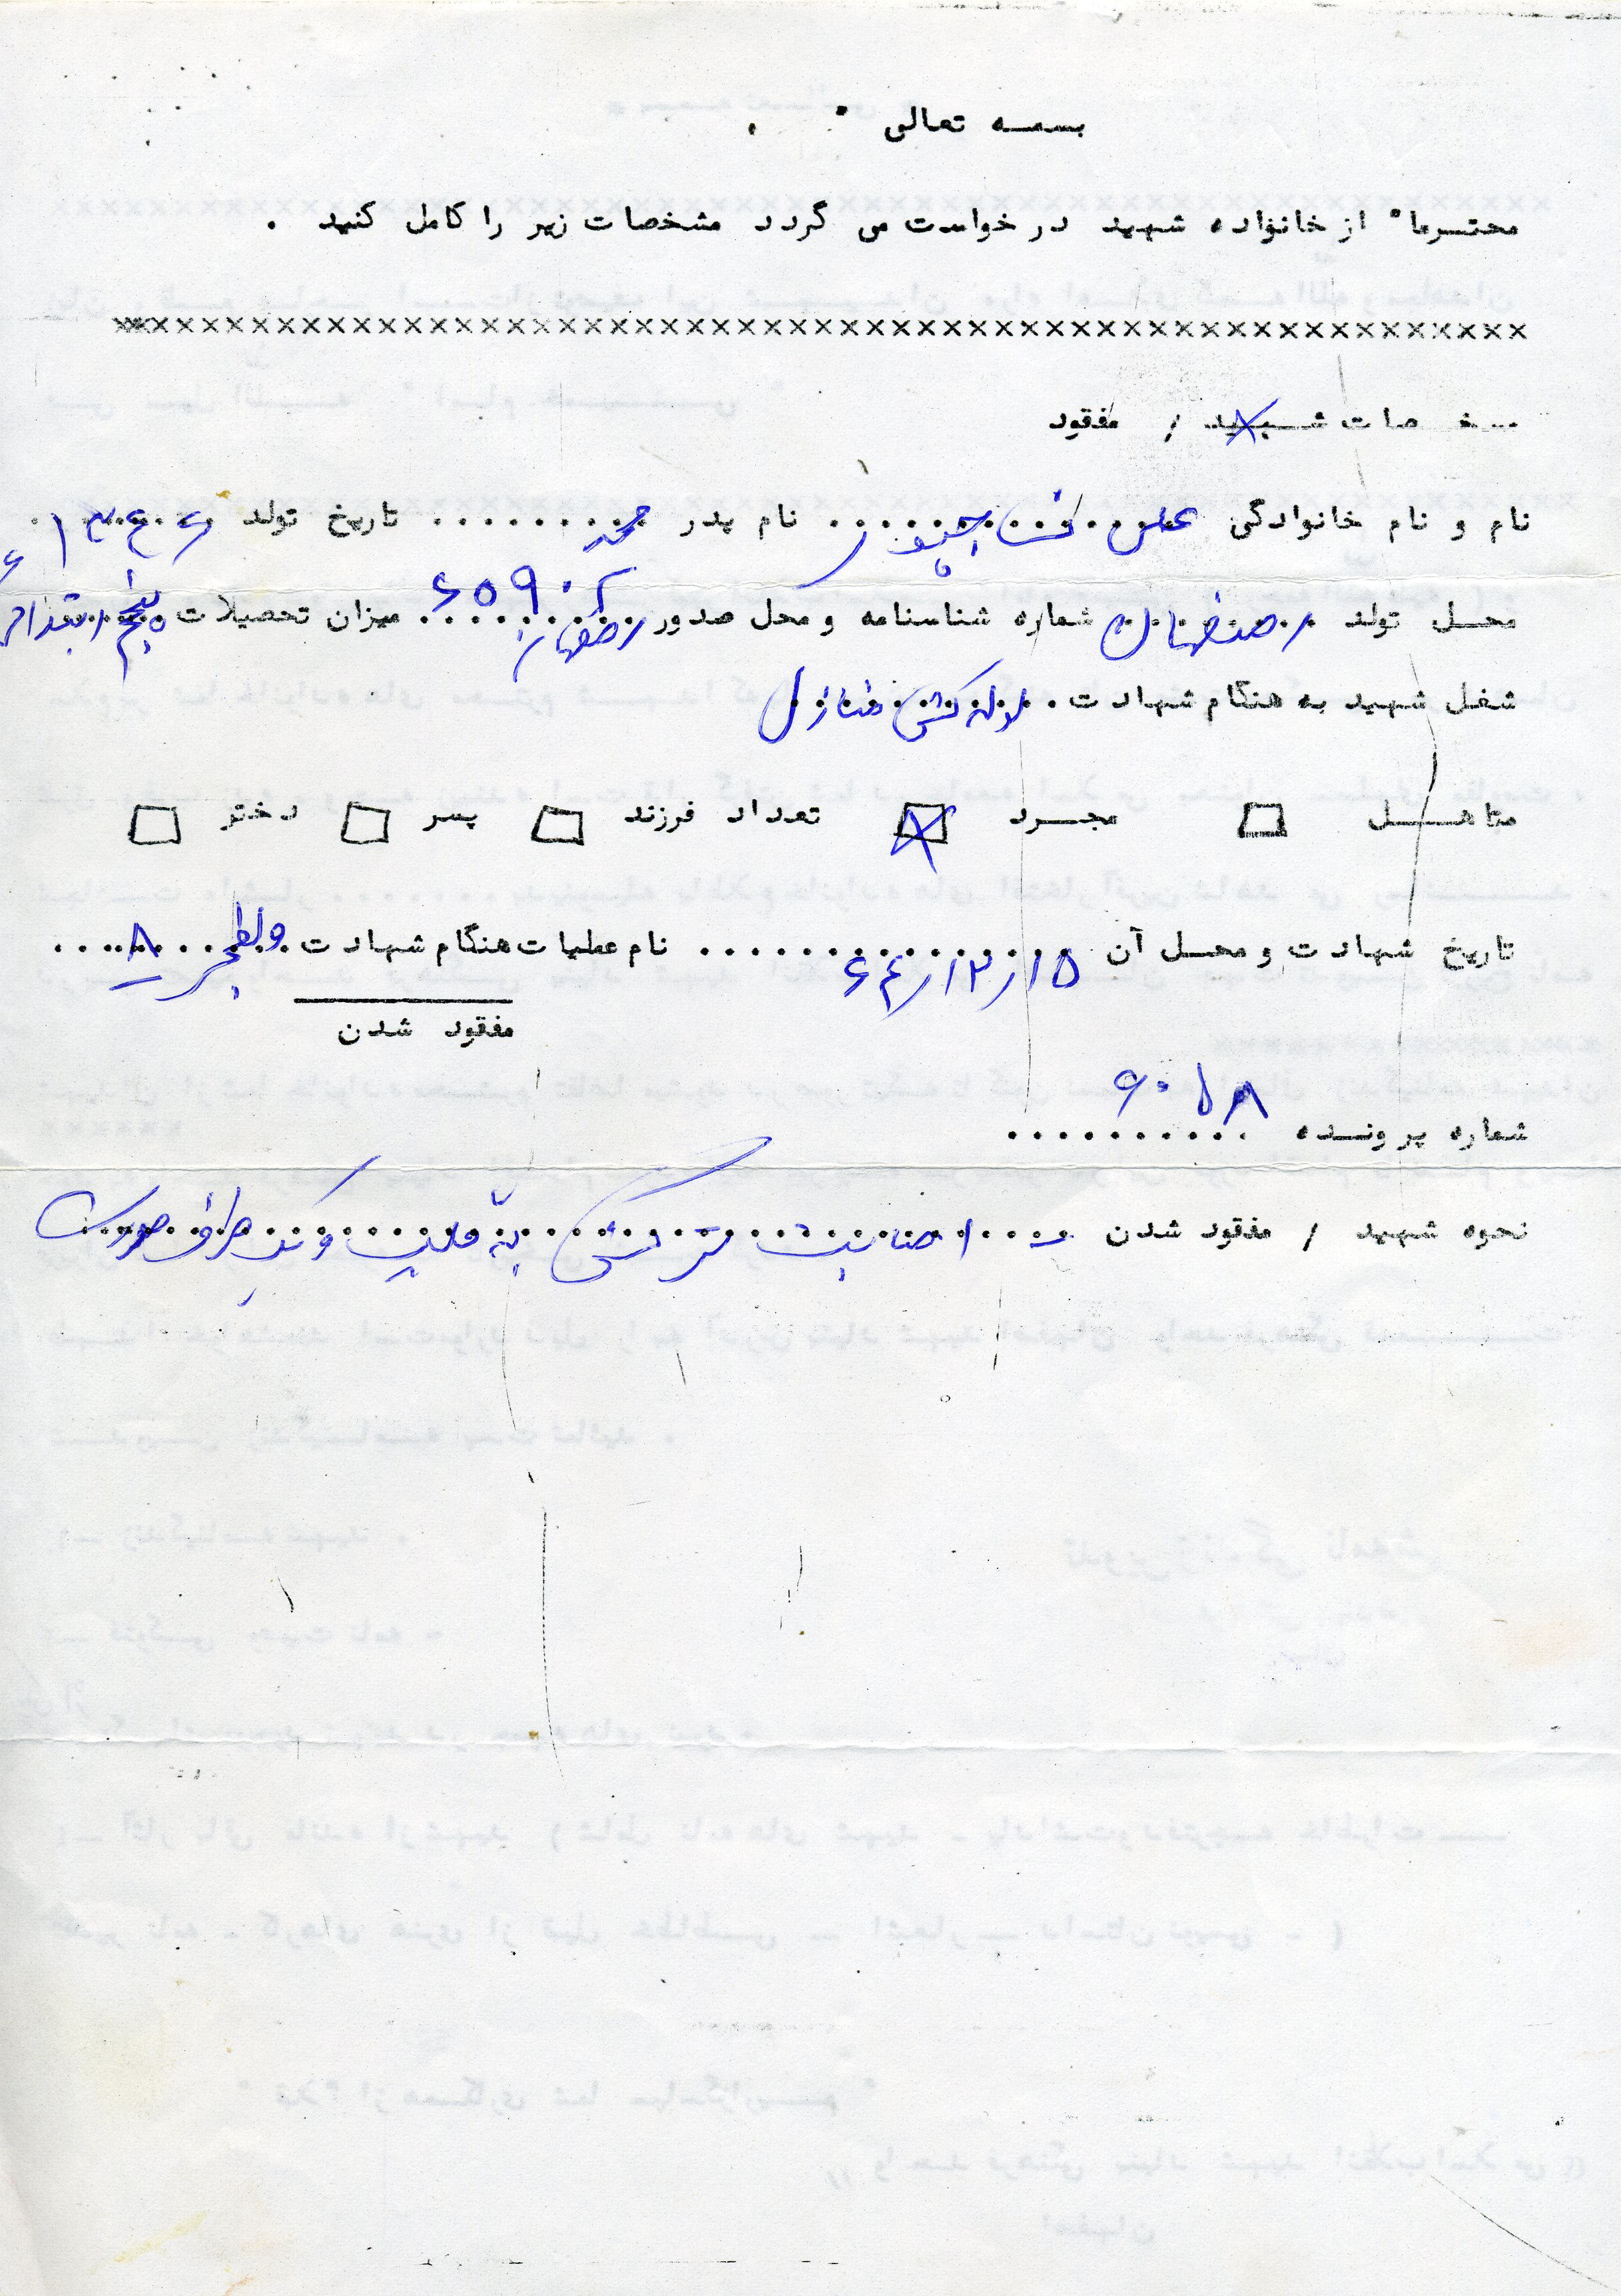 بسمه تعالی
محترما" از خانواده شهید درخواست می گردد مشخصات زیر را کامل کنید .
××××××××××××××××××××××××××××××××××××××××××××××××××××××
مشخصات شهید / مفقود
نام و نام خانوادگی علی ........ نام پدر محمد ........ تاریخ تولد ۱۳۴۶
محل تولد اصفهان شماره شناسنامه و محل صدور ۶۵۹۰۲ اصفهان میزان تحصیلات پنجم ابتدائی
شغل شهید به هنگام شهادت . لوله کشی منازل
متاهل □ مجرد ☒ تعداد فرزند □ پسر □ دختر □
تاریخ شهادت و محل آن ۶۴/۱۲/۱۵ ........ نام عملیات هنگام شهادت والفجر ۸
مفقود شدن
شماره پرونده ۶۰۱۸
نحوه شهید / مفقود شدن .... اصابت ترکش به قلب و یک طرف صورت